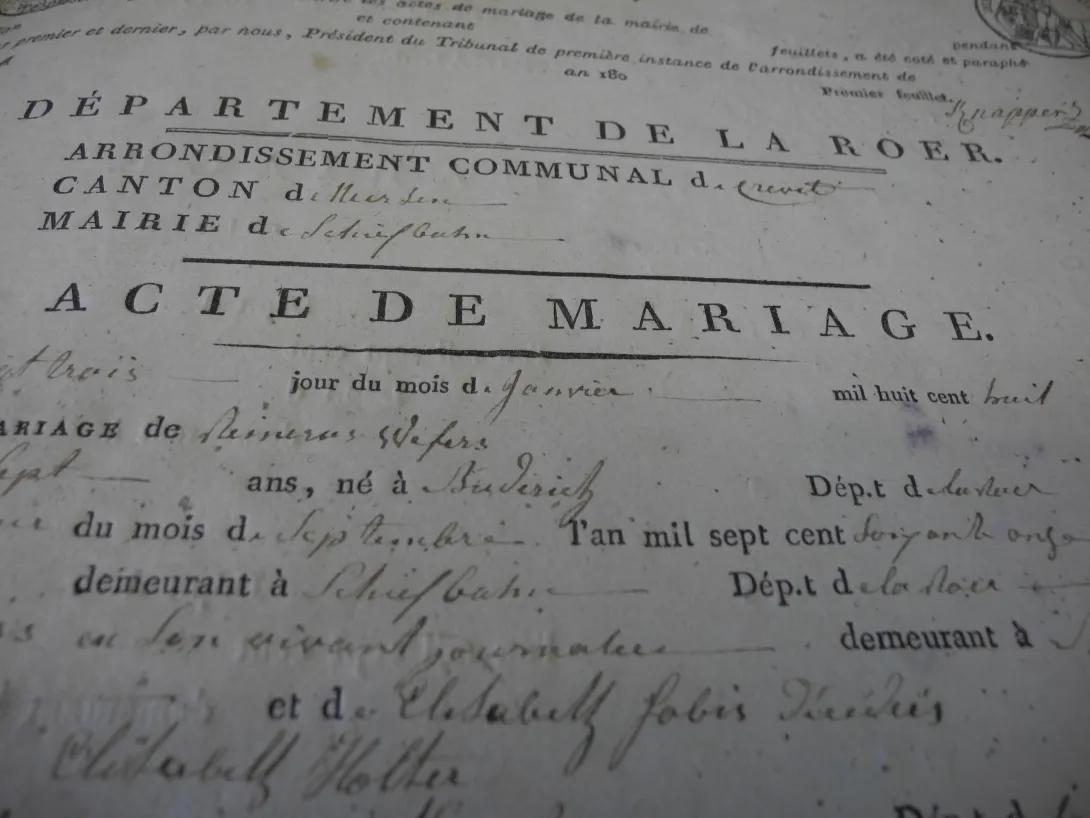 les actes de mariage de la mairie de
et contenant feuillets, a été coté et paraphé pendant
premier et dernier, par nous, Président du Tribunal de première instance de l'arrondissement de
an 180
Premier feuillet.
DÉPARTEMENT DE LA ROER.
ARRONDISSEMENT COMMUNAL de Crevelt
CANTON de Neersen
MAIRIE de Schiefbahn
ACTE DE MARIAGE.
trois jour du mois de Janvier mil huit cent huit
ARIAGE de Reinerus Wefers
sept ans, né à Buderich Dép.t de la Roer
du mois de Septembre l'an mil sept cent soixante onze
demeurant à Schiefbahn Dép.t de la Roer
en son vivant journalier demeurant à
et de Elisabeth Jobis
Elisabeth Holter